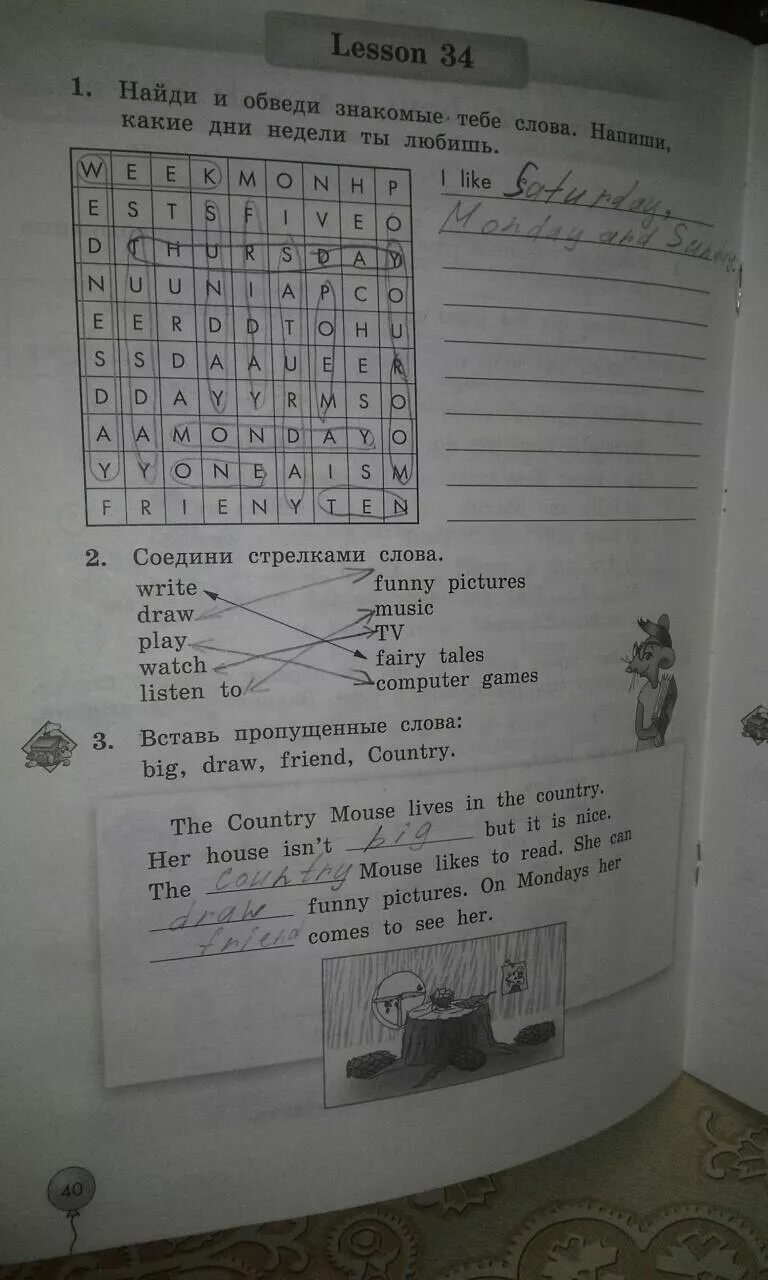 Lesson 34
1. Найди и обведи знакомые тебе слова. Напиши,
какие дни недели ты любишь.
W E E K M O N H P
E S T S F I V E O
D T H U R S D A Y
N U U N I A P C O
E E R D D T O H U
S S D A A U E E R
D D A Y Y R M S O
A A M O N D A Y O
Y Y O N E A I S M
F R I E N Y T E N
I like Saturday,
Monday and Sunday.
2. Соедини стрелками слова.
write funny pictures
draw music
play TV
watch fairy tales
listen to computer games
3. Вставь пропущенные слова:
big, draw, friend, Country.
The Country Mouse lives in the country.
Her house isn't big but it is nice.
The country Mouse likes to read. She can
draw funny pictures. On Mondays her
friend comes to see her.
40